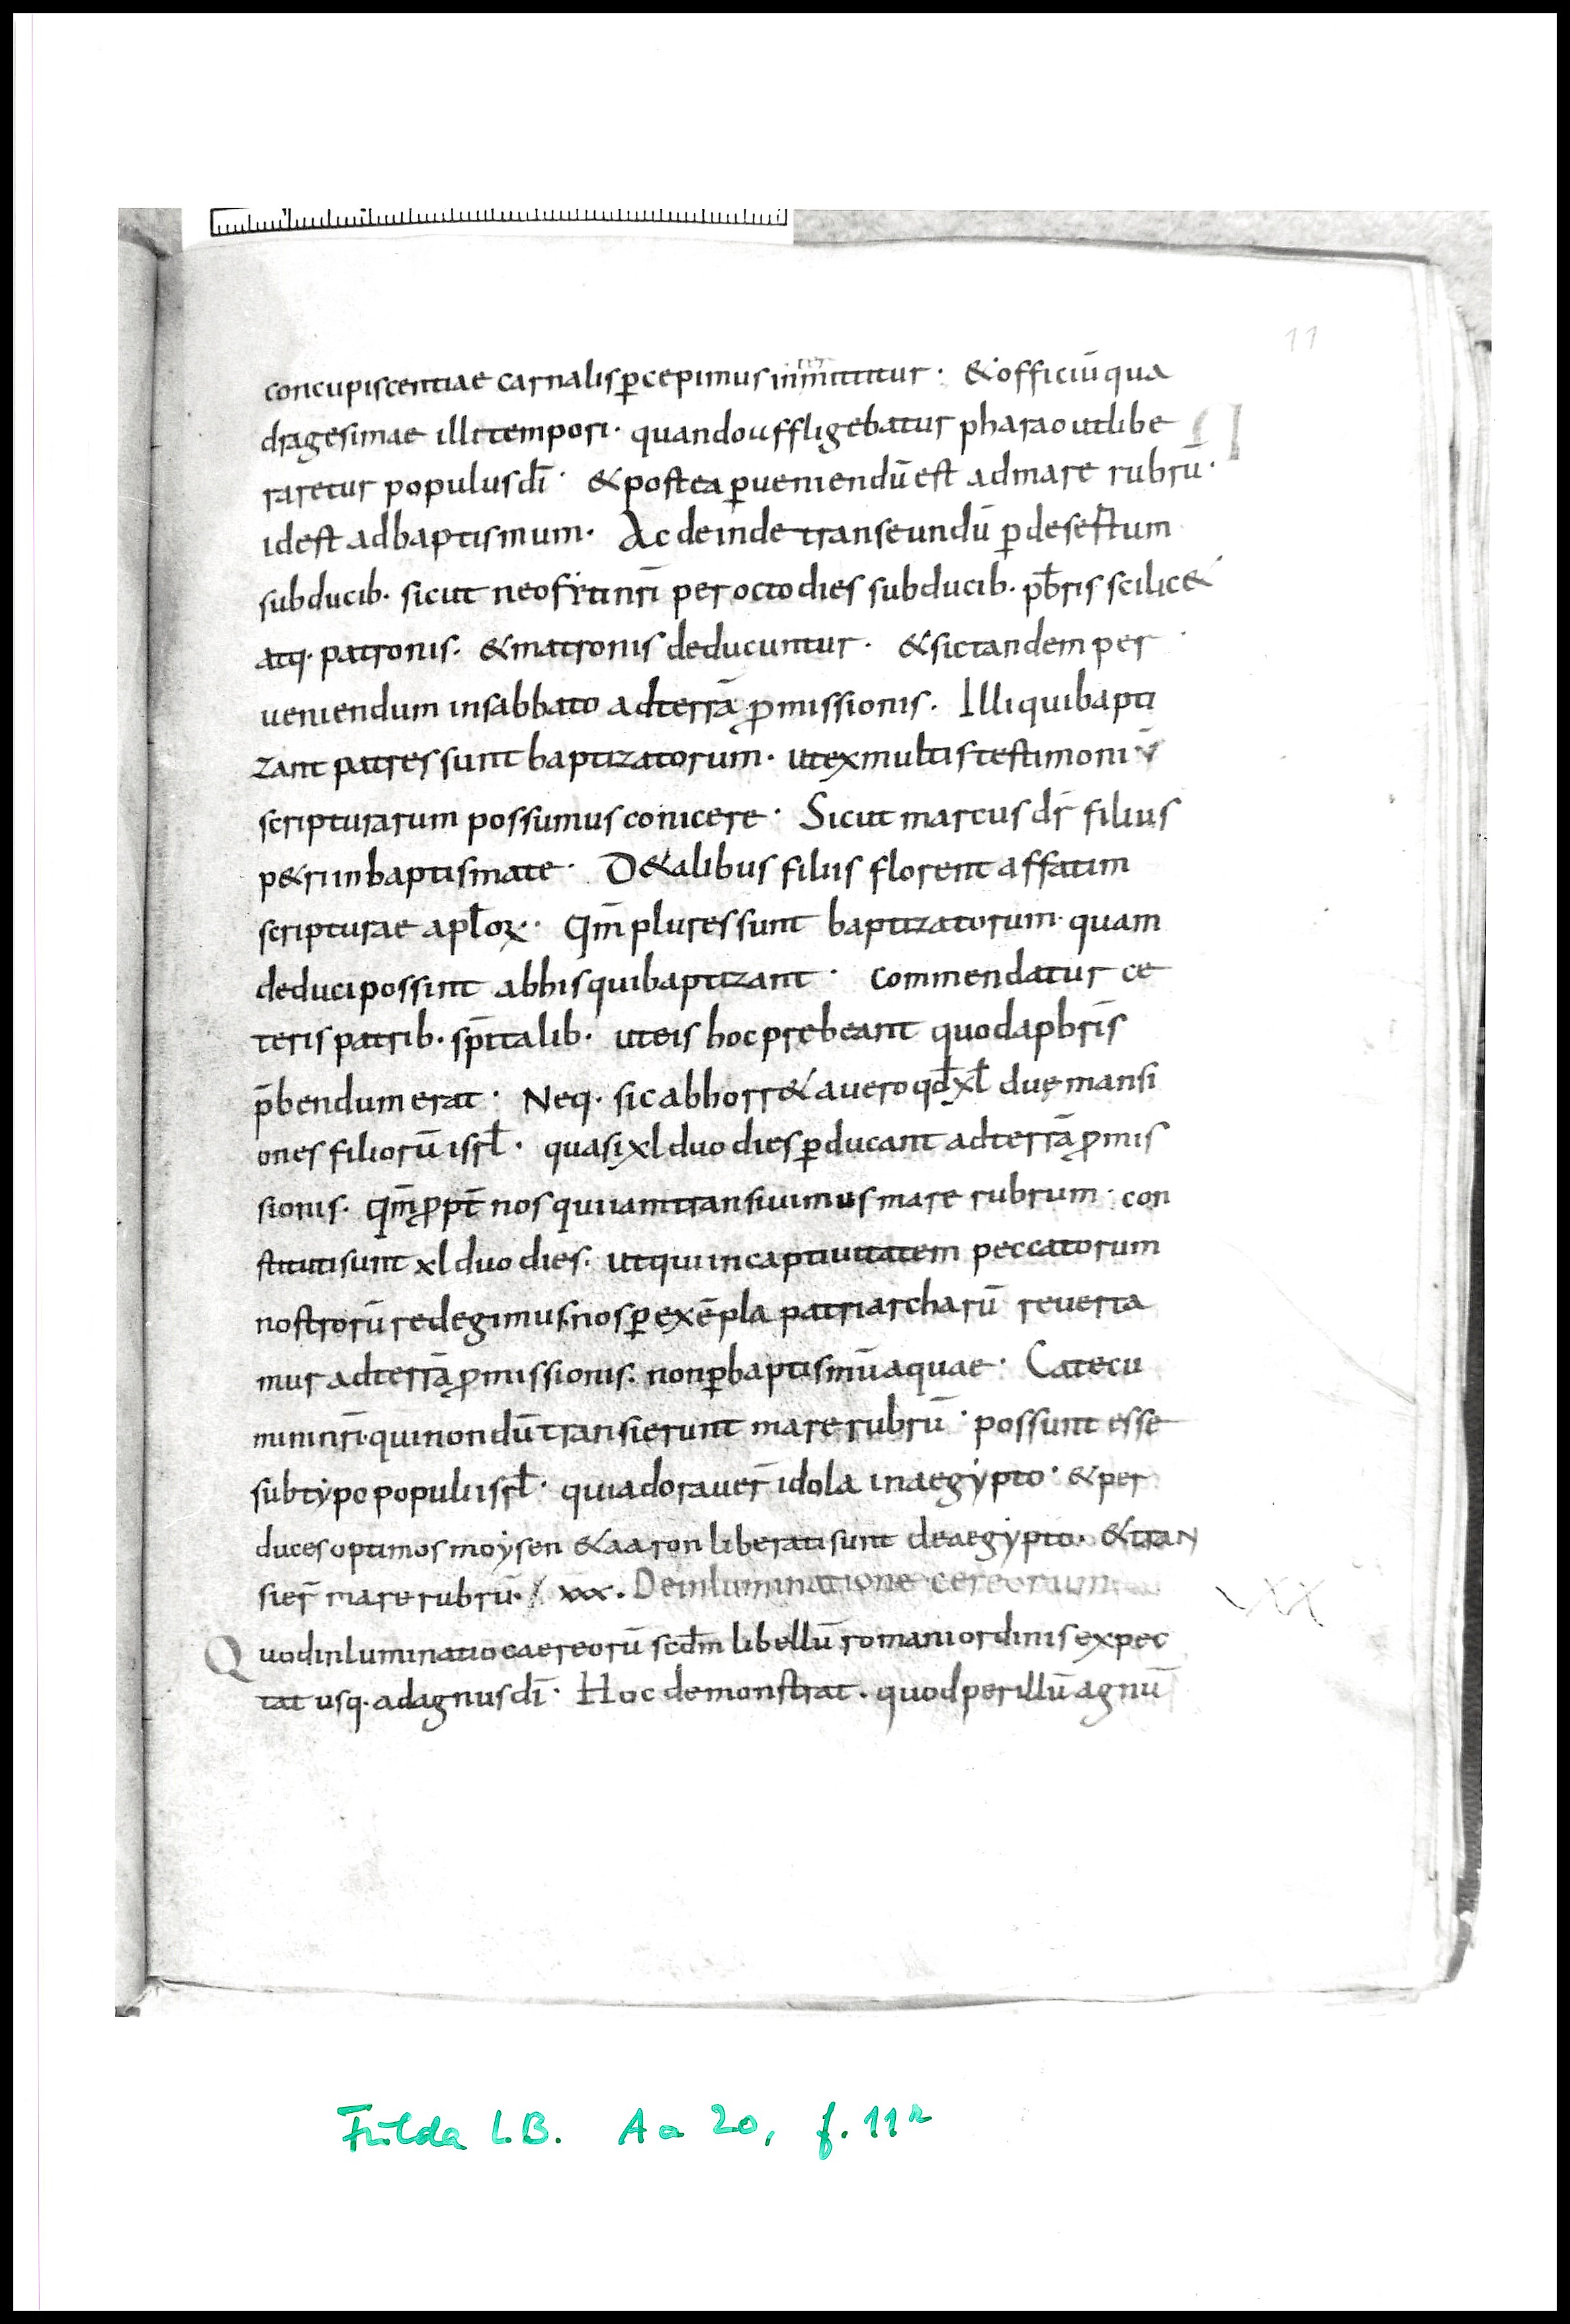 11
concupiscentiae carnalis p̱cepimus inmittitur · & officiū qua
dragesimae illi tempori · quando uffligebatur pharao ut libe
raretur populus dī · & postea p̱ueniendū est ad mare rubrū ·
id est ad baptismum · Ac deinde transeundū p̱ desertum
sub ducib · sicut neofẏti nr̄i per octo dies sub ducib · pb̄ris scilic&
atq · patronis · & matronis deducuntur · & sic tandem per
ueniendum in sabbato ad terrā ꝓmissionis · Illi qui bapti
zant patres sunt baptizatorum · ut ex multis testimoniis
scripturarum possumus conicere · Sicut marcus dr̄ filius
p&ri in baptismate · D& alibus filiis florent affatim
scripturae apl̄oꝝ · Qm̄ plures sunt baptizatorum · quam
deduci possint ab his qui baptizant · commendatur ce
teris patrib · sp̄italib · ut eis hoc prębeant quod a pbr̄is
p̄bendum erat · Neq · sic abhorr& a uero qđ xl duę mansi
ones filiorū isrł · quasi xl duo dies p̱ducant ad terrā ꝓmis
sionis · Qm̄ ꝓpt̄ nos qui iam transiuimus mare rubrum · con
stituti sunt xl duo dies · ut qui in captiuitatem peccatorum
nostrorū redegimus nos p̱ exēpla patriarcharū reuerta
mur ad terrā ꝓmissionis · non p̱ baptismū aquae · Catecu
mini nr̄i · qui nondū transierunt mare rubrū · possunt esse
sub tẏpo populi isrł · qui adorauer̄ idola in aegẏpto · & per
duces optimos moẏsen & aaron liberati sunt de aegẏpto · & tran
sier̄ mare rubrū · / xxx . De inluminatione cereorum
XX
Quod inluminatio caereorū scdm̄ libellū romani ordinis expec
tat usq · ad agnus dī · Hoc demonstrat · quod per illū agnū
Fulda L.B. Aa 20, f. 11r